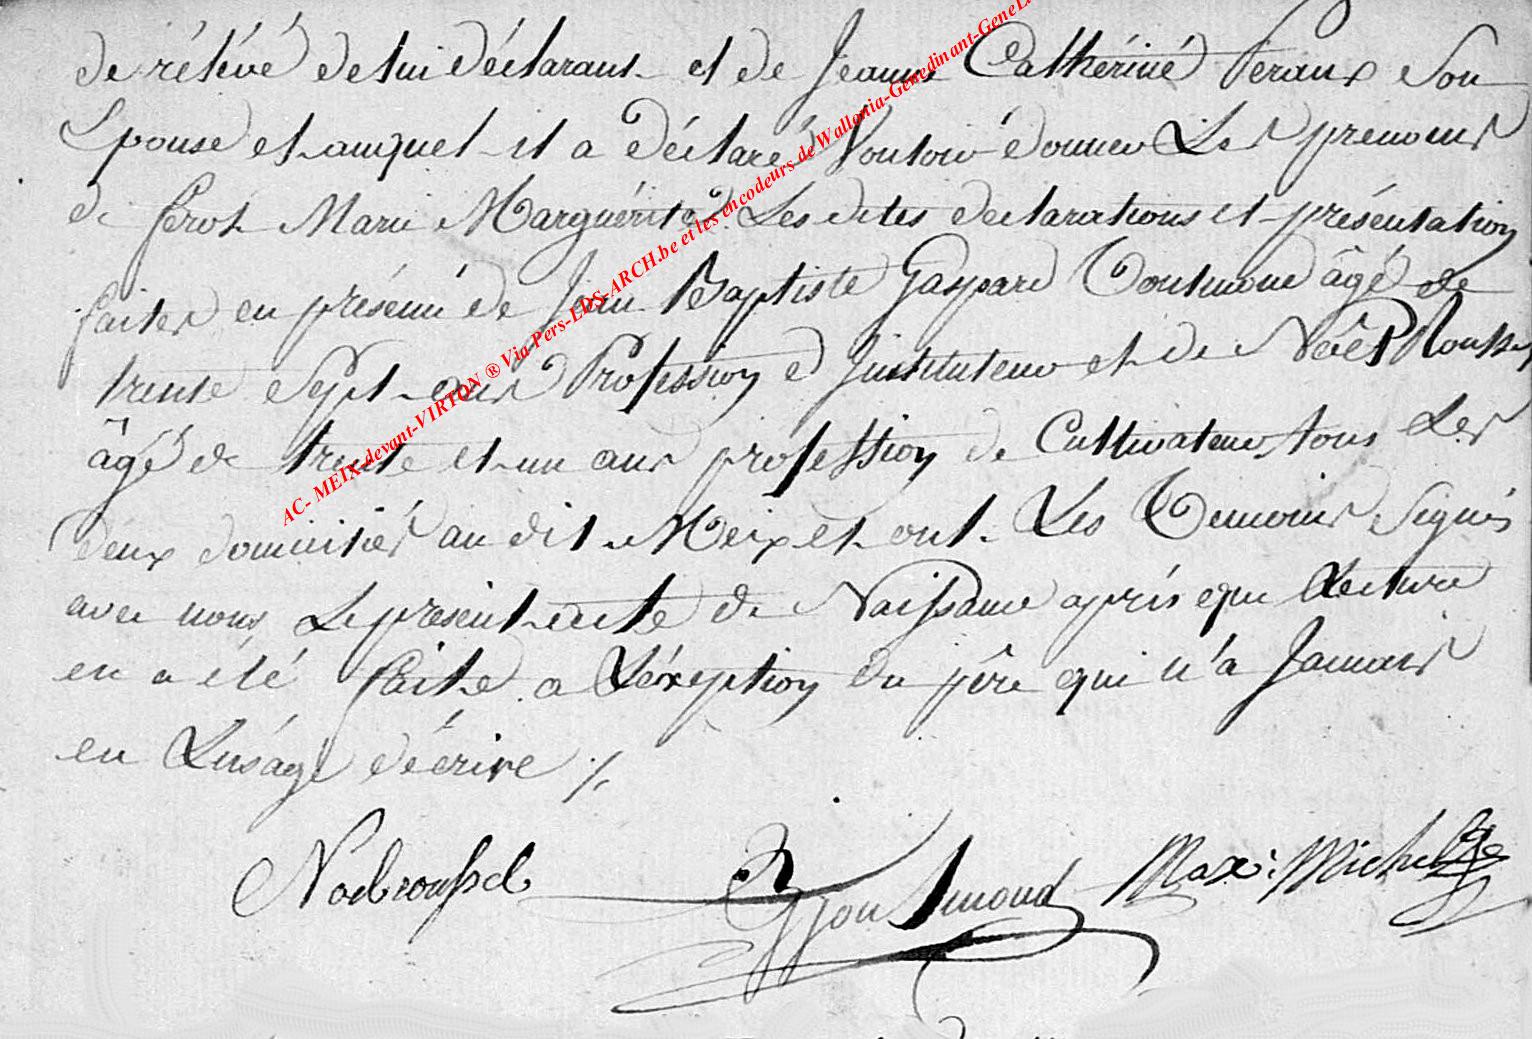 de rélévé de lui déclarant et de Jeanne Cathériné Peraux Son
Epouse et auquel il a déclaré Vouloir donner Les prenoms
de ferot Marie Marguérite. Les dites declarations et présentation
faites en présence de Jean Baptiste Gaspard Toutmond âgé de
trente Sept ans Profession d Instituteur et de Noêl Roussel
âgé de trente et un ans profession de Cultivateur, tous Les
deux domiciliés au dit Meix et ont Les Temoins Signés
avec nous Le present acte de Naissance aprés que Lecture
en a été faite a L'éxeption du pêre qui n'a Jamais
eu L'uságe décrire ./.
Noel roussel Toutmond Max: Michel
AC- MEIX-devant-VIRTON ® Via Pers-LDS-ARCH.be et les encodeurs de Wallonia-Genedinant-GeneLu